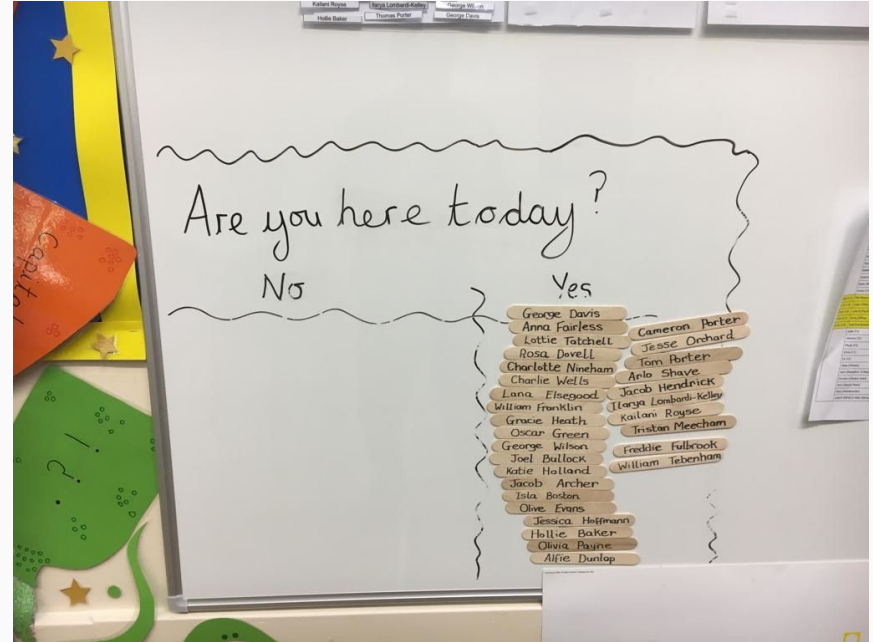 Kailani Royse
Ilarya Lombardi-Kelley
George Wilson
Hollie Baker
Thomas Porter
George Davis
Capital
Are you here today?
No
Yes
George Davis
Anna Fairless
Lottie Tatchell
Rosa Dovell
Charlotte Nineham
Charlie Wells
Lana Elsegood
William Franklin
Gracie Heath
Oscar Green
George Wilson
Joel Bullock
Katie Holland
Jacob Archer
Isla Boston
Olive Evans
Jessica Hoffmann
Hollie Baker
Olivia Payne
Alfie Dunlop
Cameron Porter
Jesse Orchard
Tom Porter
Arlo Shave
Jacob Hendrick
Ilarya Lombardi-Kelley
Kailani Royse
Tristan Meecham
Freddie Fulbrook
William Tebenham